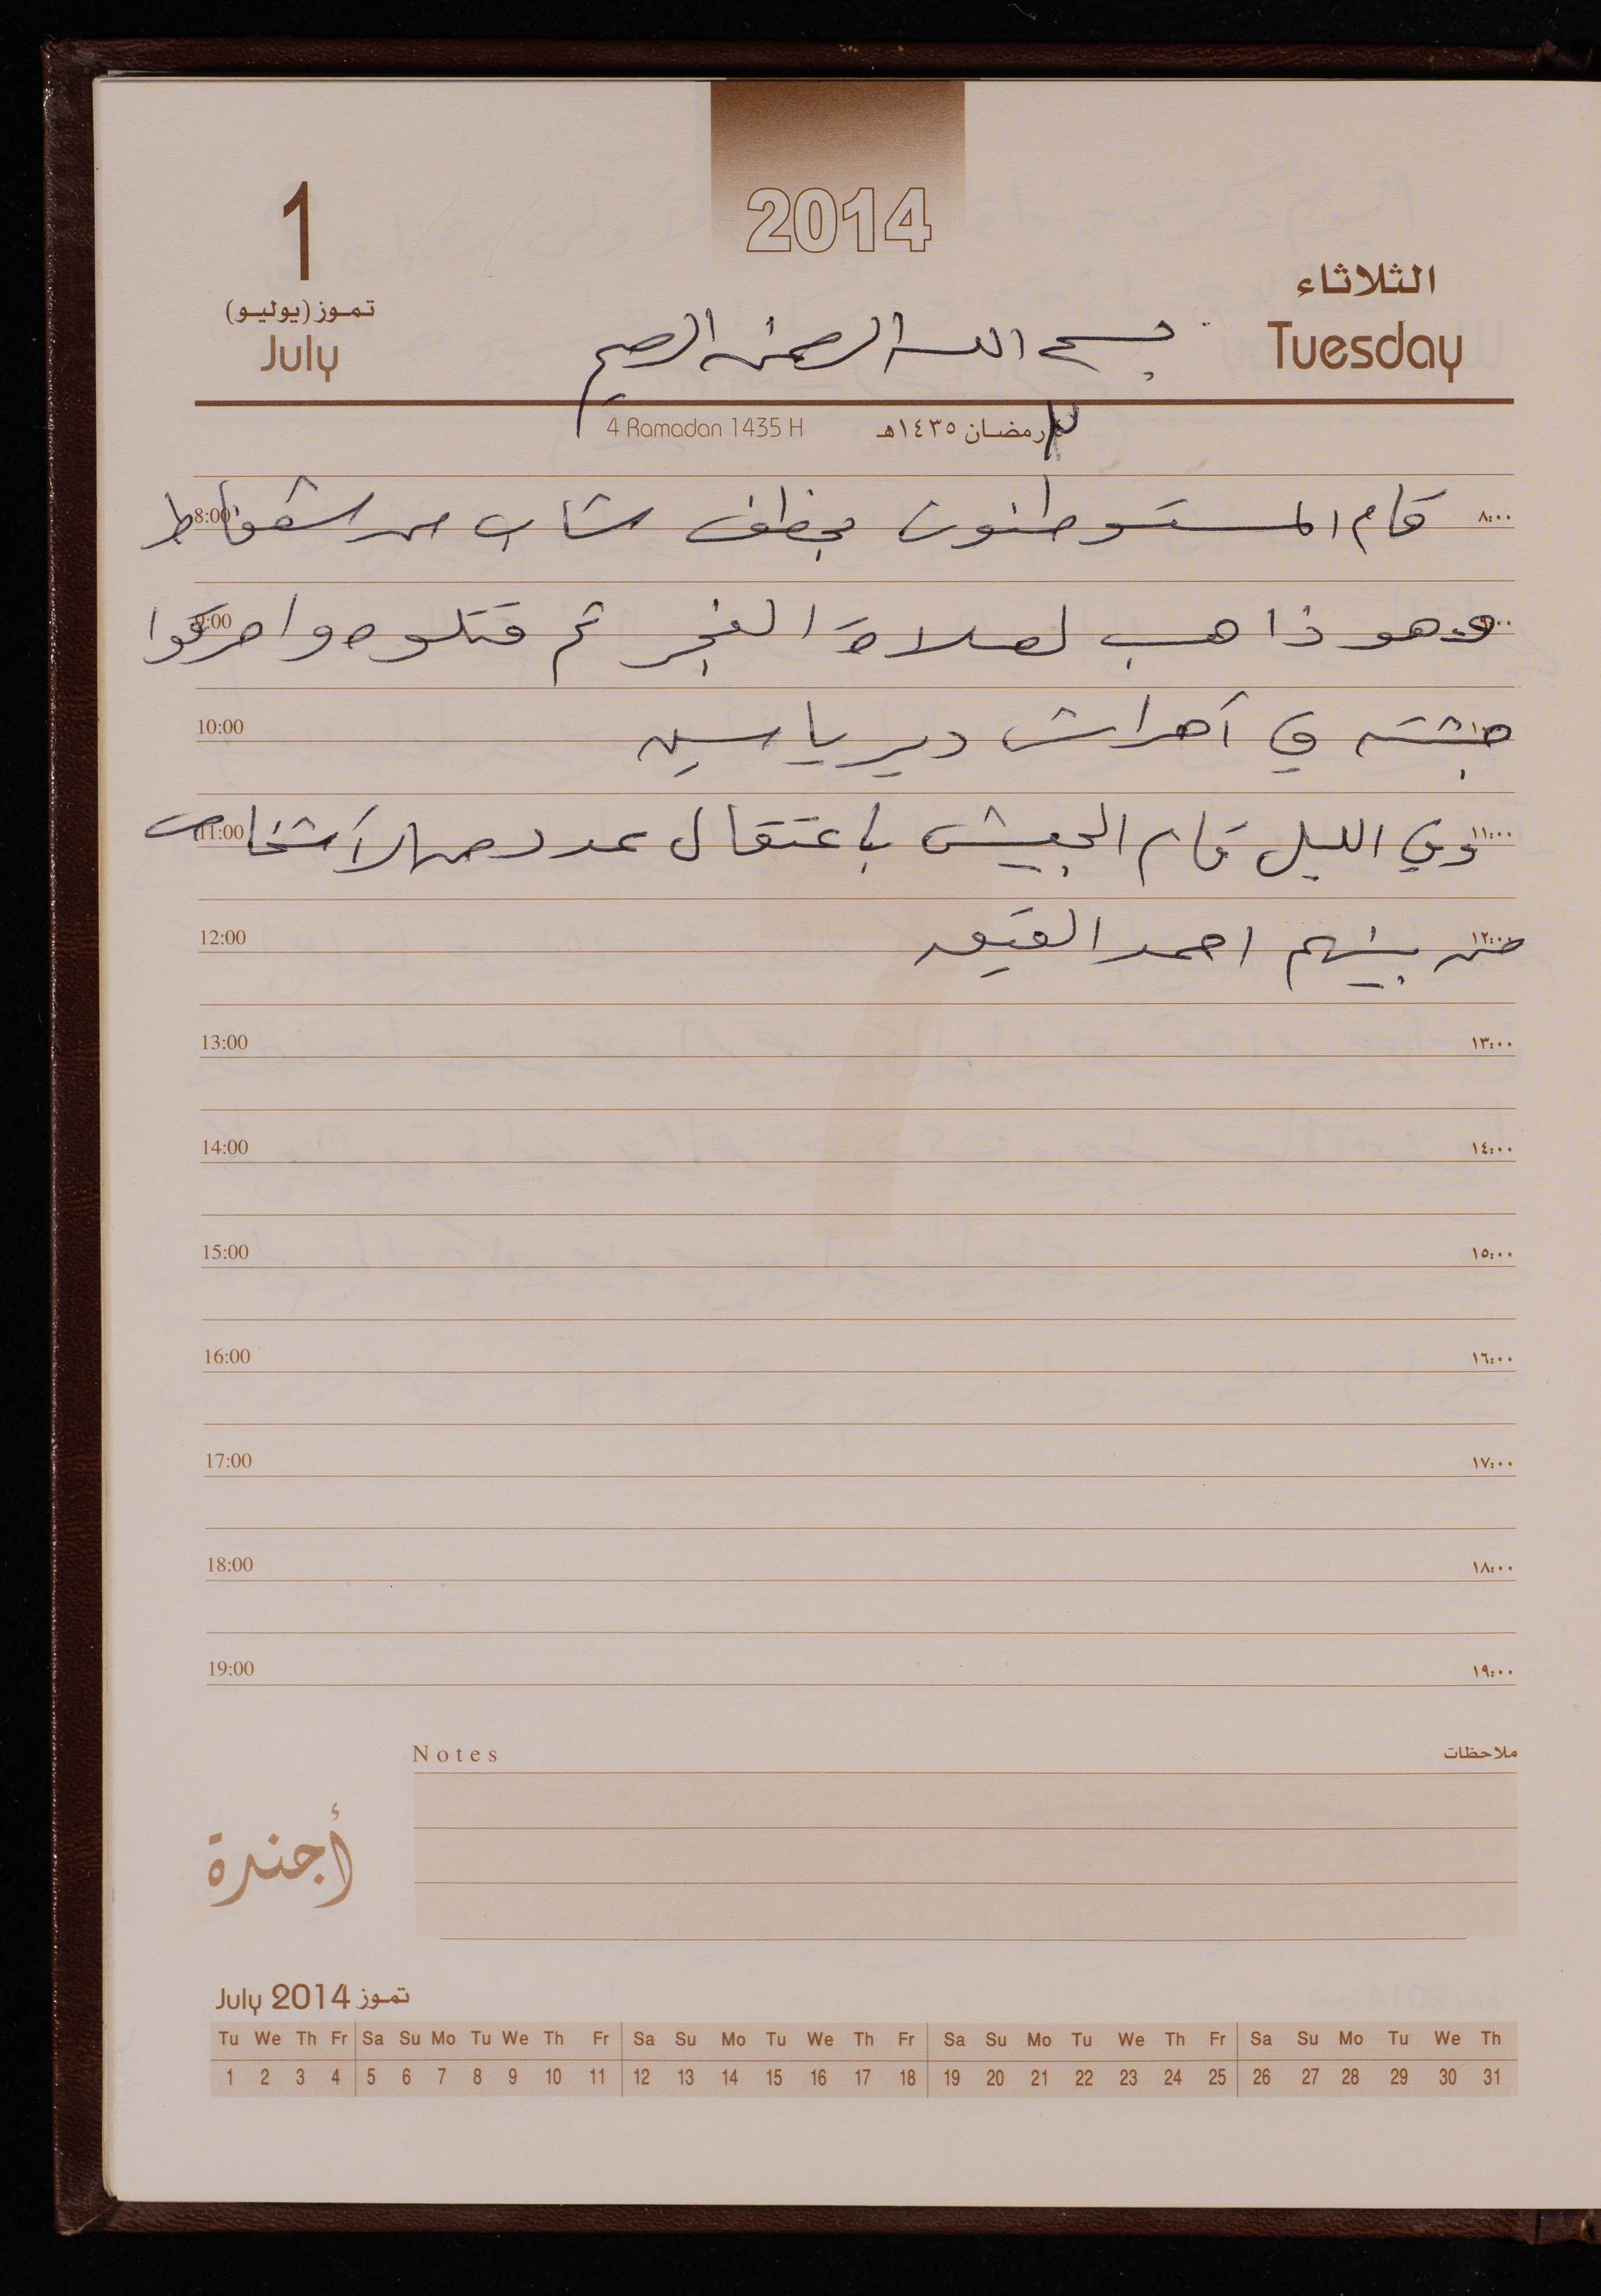 2014
1
تموز (يوليو)
July
الثلاثاء
Tuesday
بسم الله الرحمن الرحيم
4 Ramadan 1435 H
رمضان ١٤٣٥هـ
8:00 قام المستوطنون بخطف شاب من شعفاط ٨:٠٠
9:00 وهو ذاهب لصلاة الفجر ثم قتلوه واحرقوا
10:00 جثته في أحراش دير ياسين
11:00 وفي الليل قام الجيش باعتقال عدد من الأشخاص ١١:٠٠
12:00 من بينهم احمد ١٢:٠٠
13:00 ١٣:٠٠
14:00 ١٤:٠٠
15:00 ١٥:٠٠
16:00 ١٦:٠٠
17:00 ١٧:٠٠
18:00 ١٨:٠٠
19:00 ١٩:٠٠
Notes ملاحظات
أجندة
July 2014 تموز
Tu We Th Fr Sa Su Mo Tu We Th Fr Sa Su Mo Tu We Th Fr Sa Su Mo Tu We Th Fr Sa Su Mo Tu We Th
1 2 3 4 5 6 7 8 9 10 11 12 13 14 15 16 17 18 19 20 21 22 23 24 25 26 27 28 29 30 31